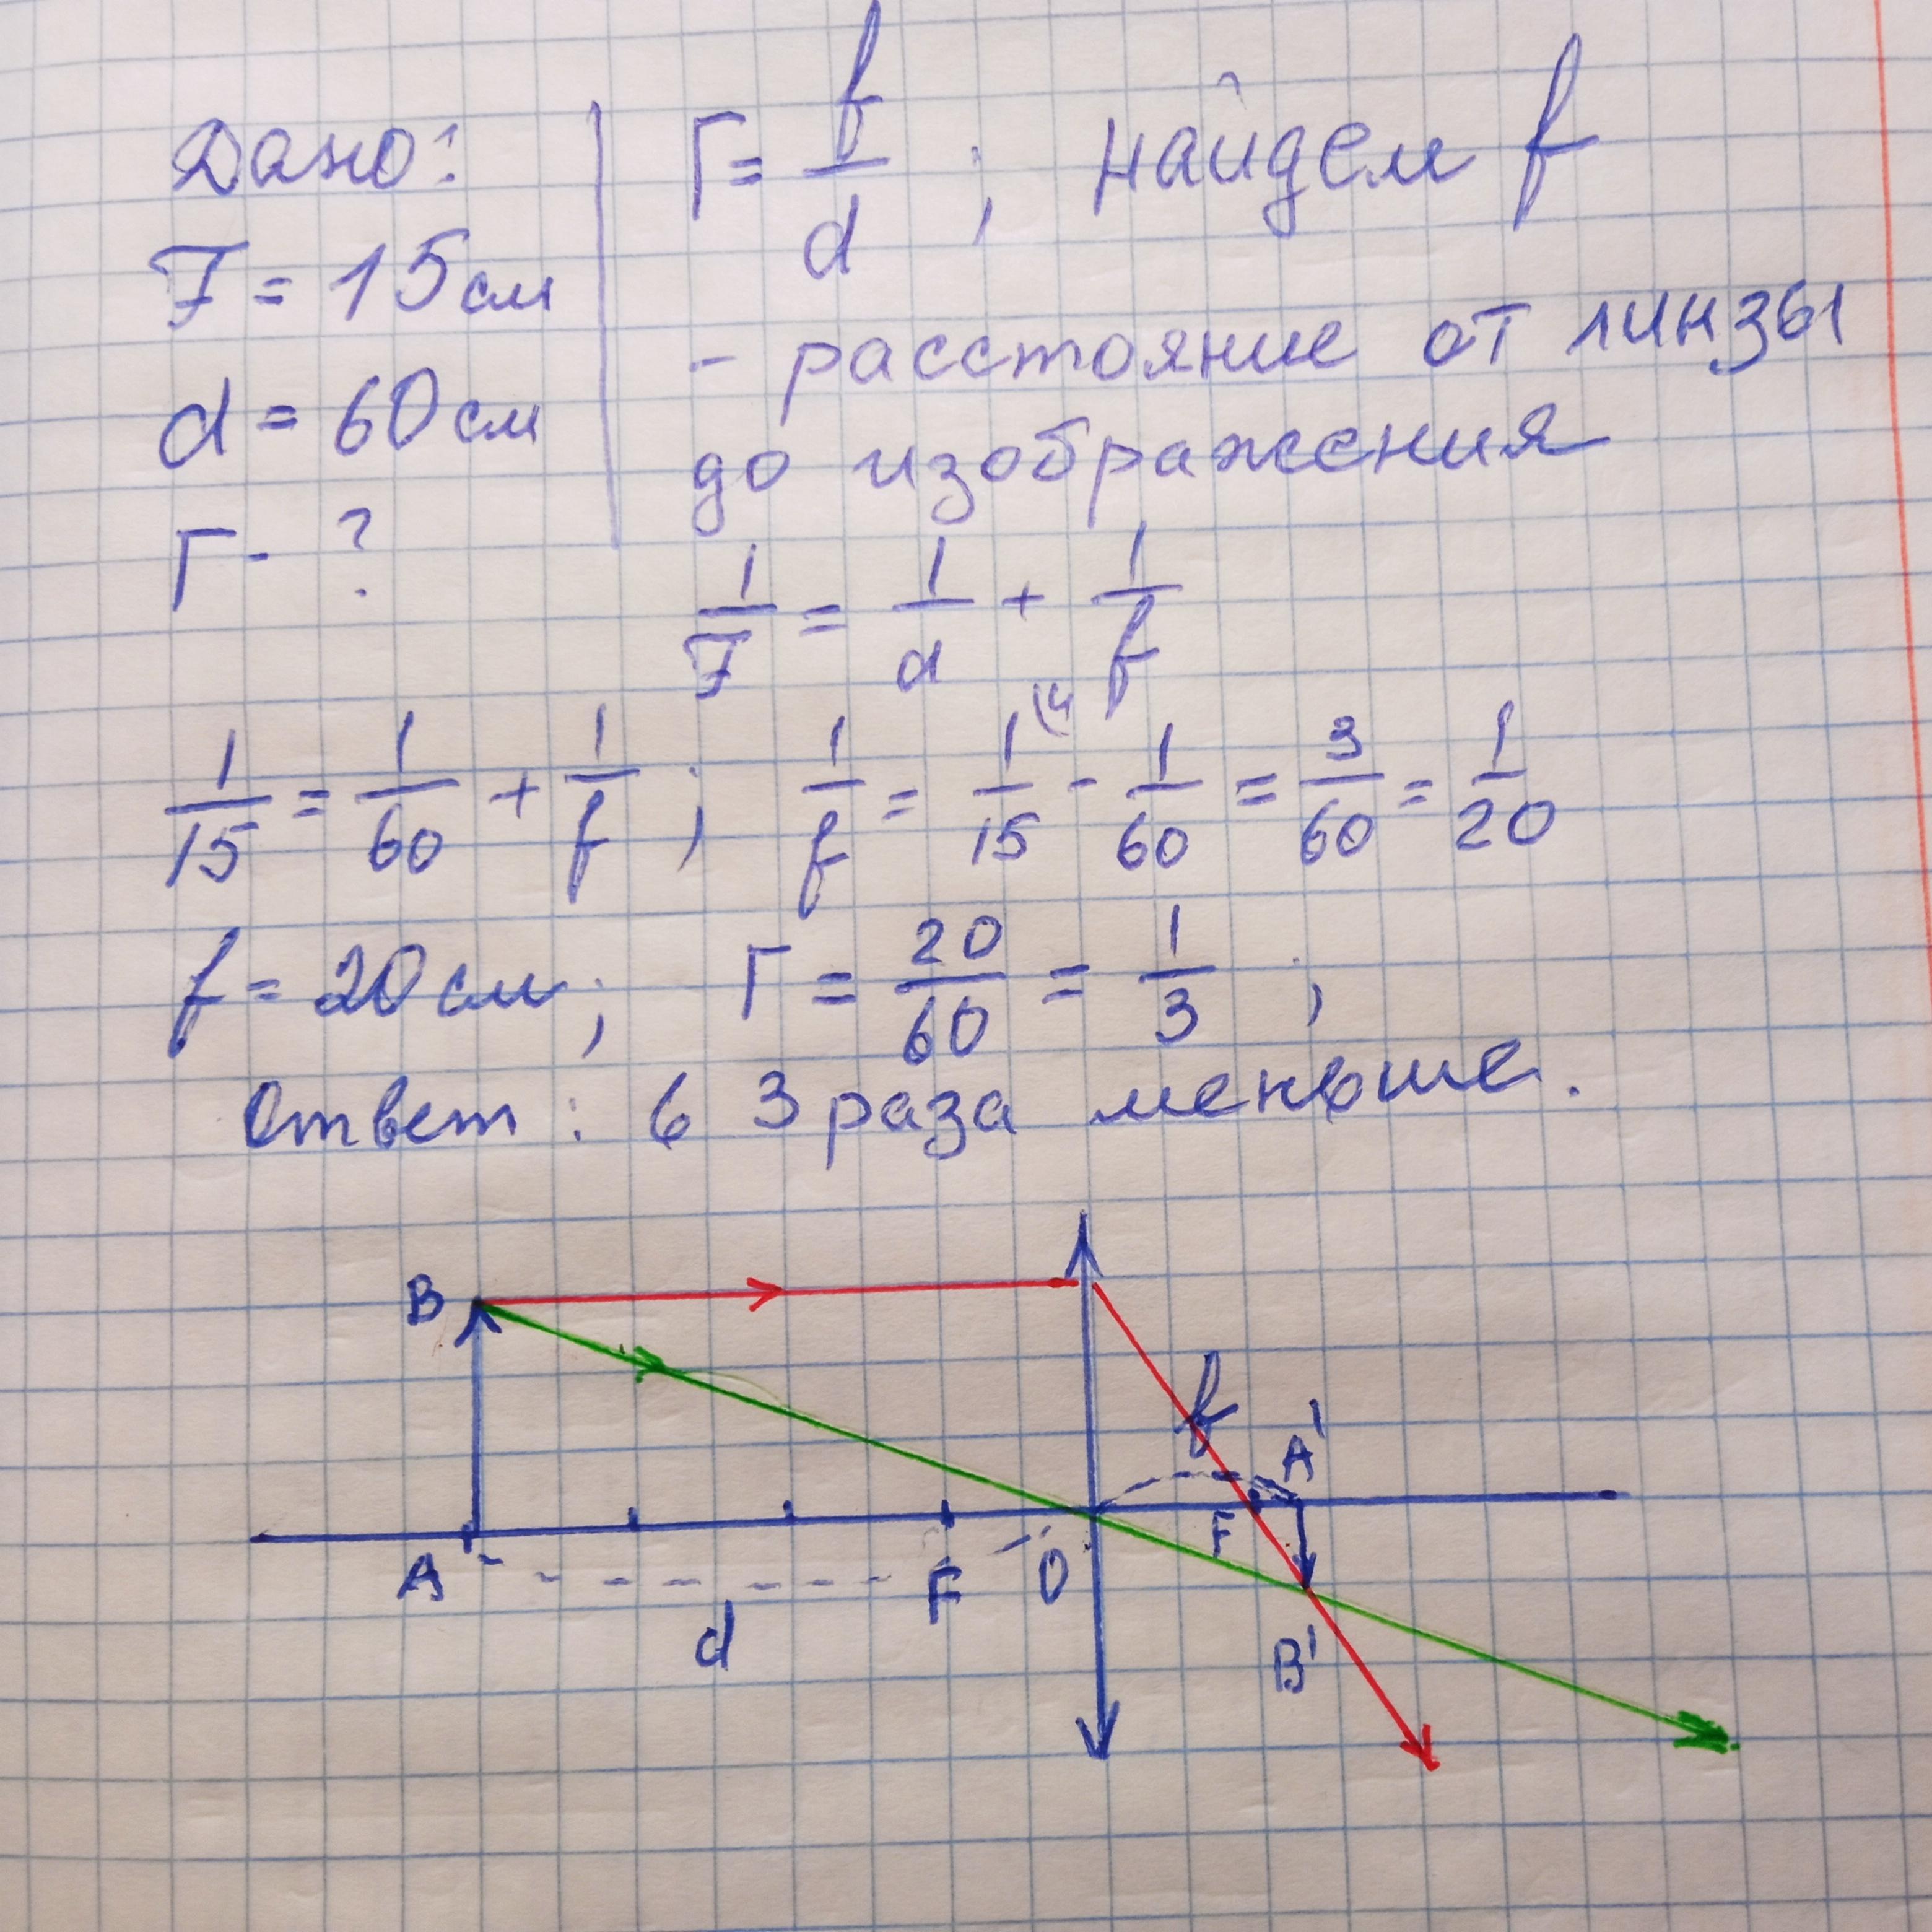 Дано:
F = 15 см
d = 60 см
Г - ?
Г = f/d ; найдем f
- расстояние от линзы
до изображения
1/F = 1/d + 1/f
1/15 = 1/60 + 1/f ; 1/f = 1/15 (4 - 1/60 = 3/60 = 1/20
f = 20 см ; Г = 20/60 = 1/3 ;
Ответ : в 3 раза меньше.
B
f
A'
A
F
O
F
d
B'